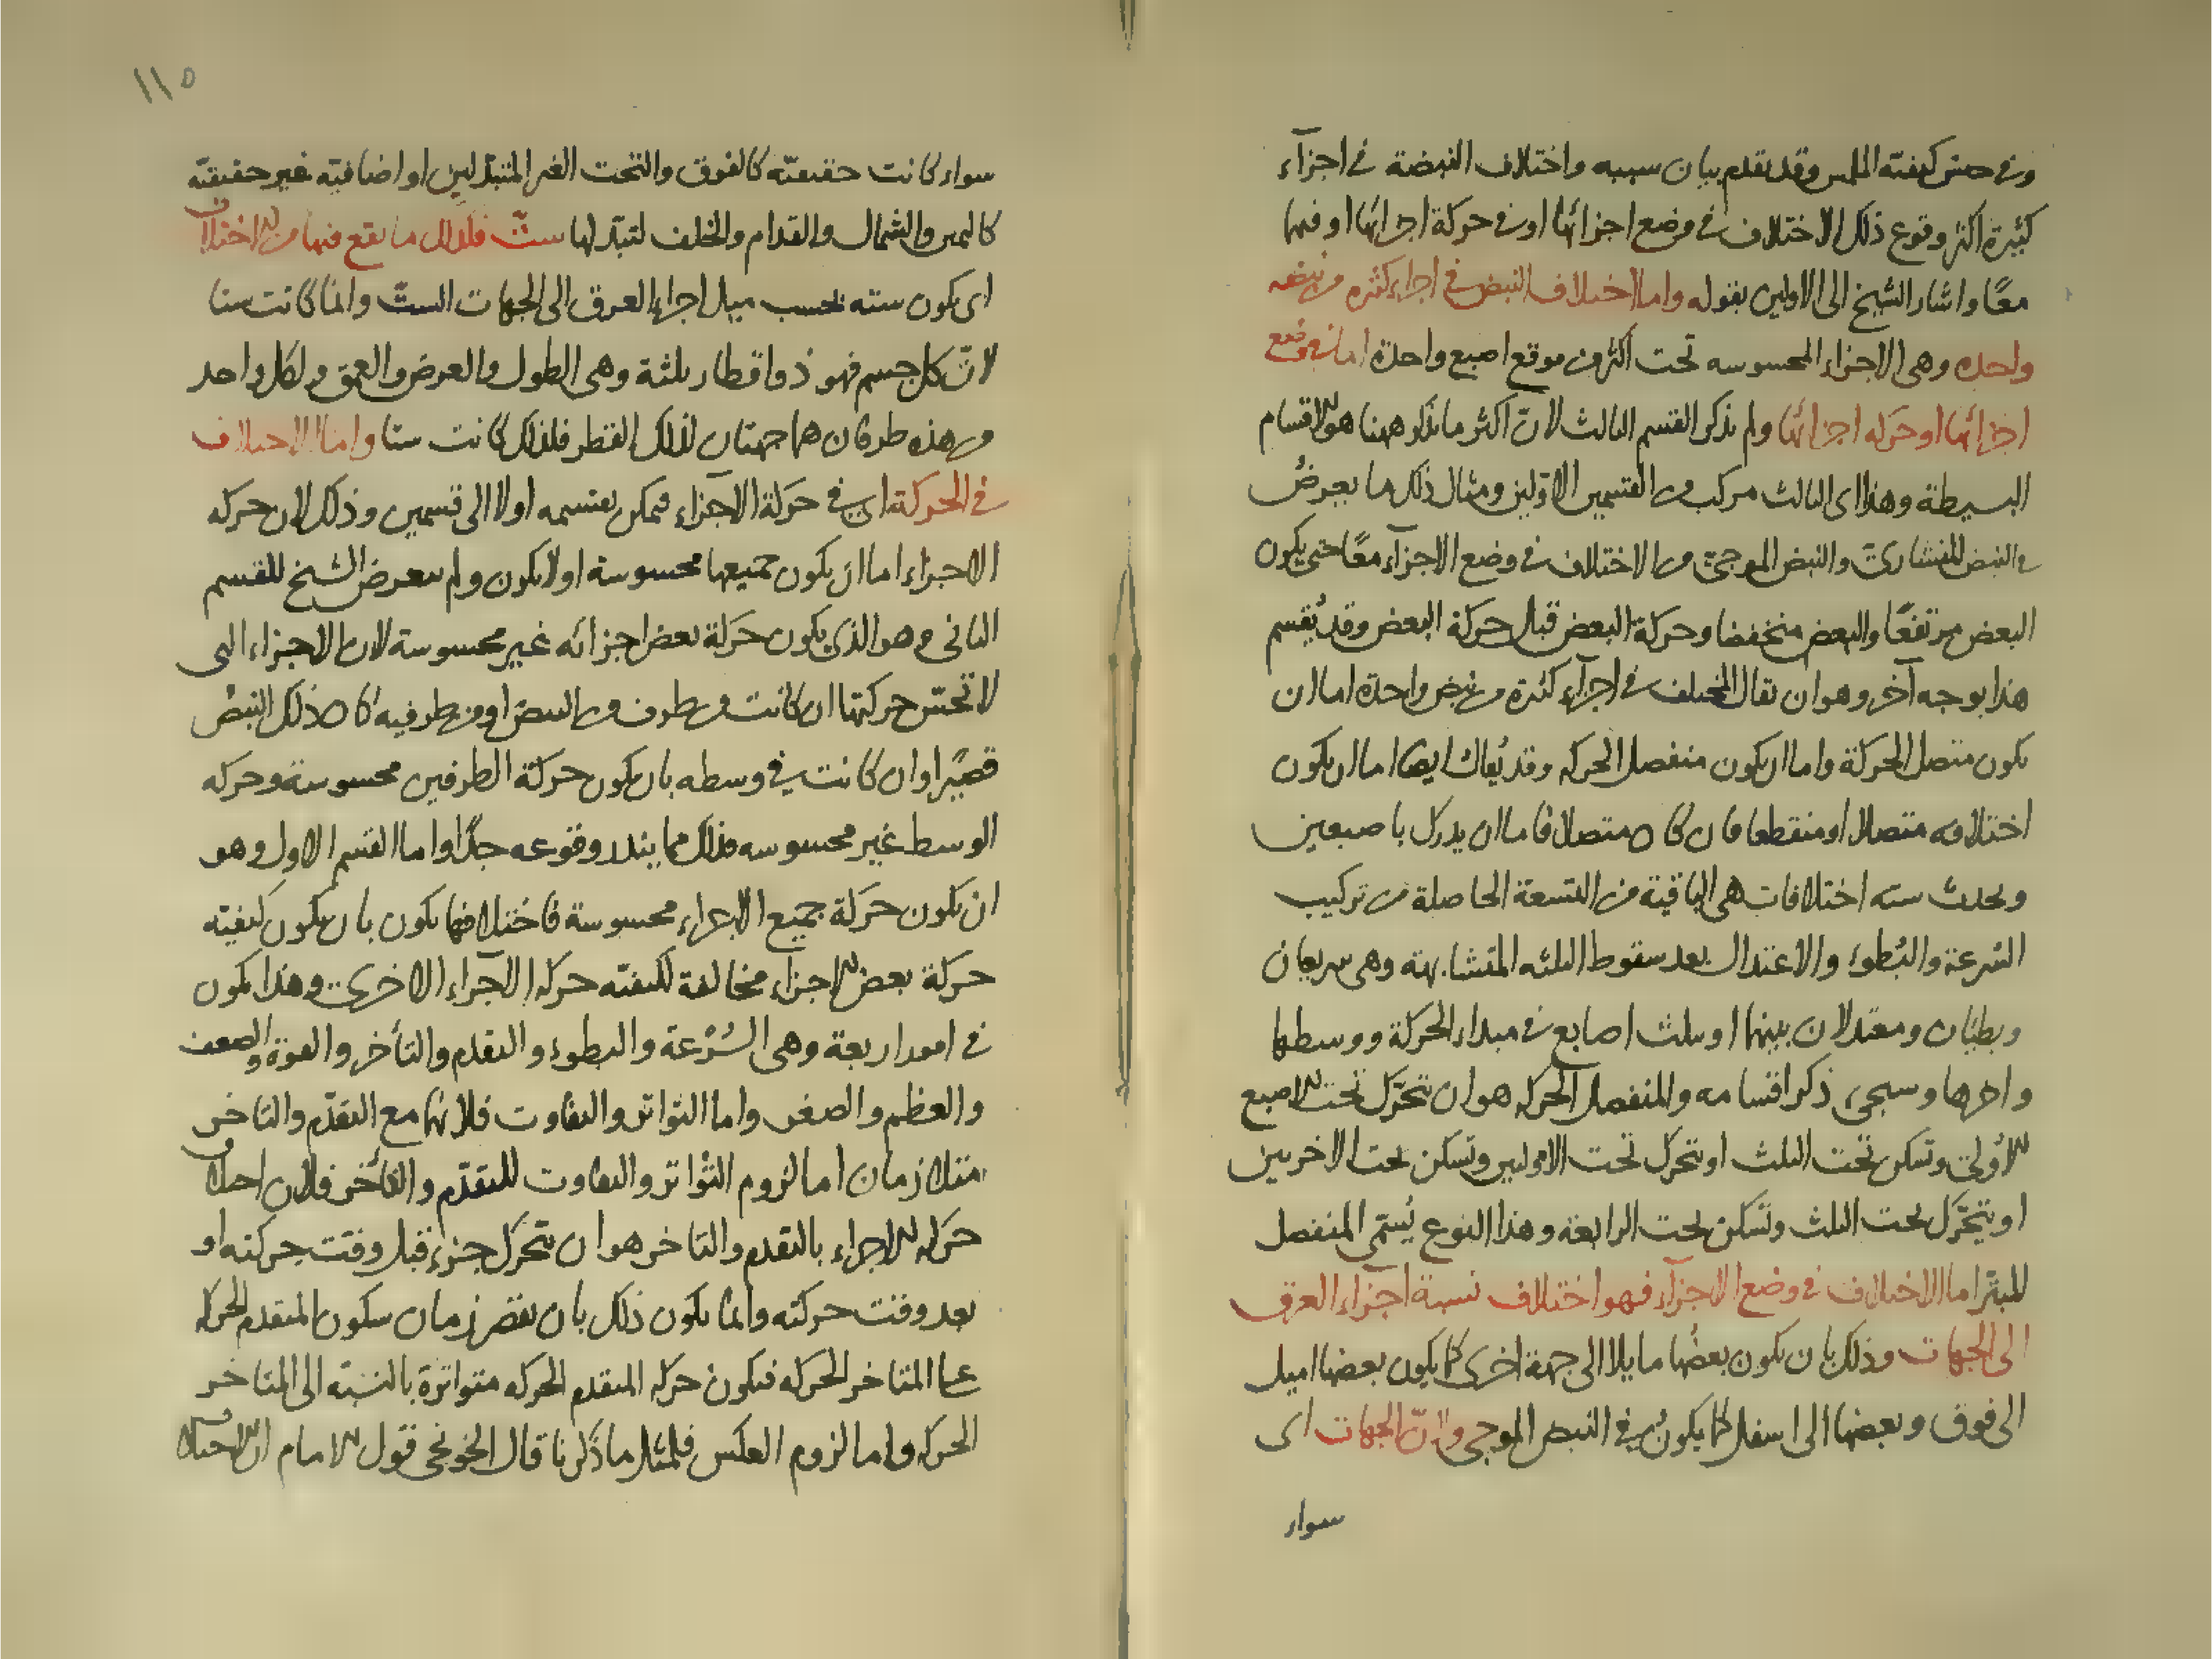 وفي جنس كيفية الملمس وقد تقدم بيان سببه واختلاف النبضة في اجزآء
كثيرة اكثر وقوع ذلك الاختلاف في وضع اجزائها او في حركة اجزائها او فيهما
معًا واشار الشيخ الى الاولين بقوله واما اختلاف النبض في اجزاء كثيرة من نبضه
واحده وهى الاجزاء المحسوسه تحت اكثر من موقع اصبع واحدة اما في وضع
اجزائها او حركه اجزائها ولم يذكر القسم الثالث لانّ اكثر ما يذكر ههنا هو الاقسام
البسيطة وهذا اى الثالث مركب من القسمين الاوّلين ومثال ذلك ما يعرضُ
في النبض المنشارىّ والنبض الموجىّ من الاختلاف في وضع الاجزآء معًا حتى يكون
البعض مرتفعًا والبعض منخفضا وحركة البعض قبل حركة البعض وقد يُقسم
هذا بوجه آخر وهو ان يقال المختلف في اجزآء كثيرة من نبض واحدة اما ان
يكون متصل الحركة واما ان يكون منفصل الحركه وقد يُقال ايضا اما ان يكون
اختلافه متصلا او منقطعا فان كان متصلا فاما ان يدرك باصبعين
ويحدث سته اختلافات هى الباقية من التسعة الحاصلة من تركيب
السّرعة والبُطوء والاعتدال بعد سقوط الثلثه المتشابهة وهى سريعان
وبطيئان ومعتدلان بينهما او بثلث اصابع في مبداء الحركة ووسطها
واخرها وسيجىء ذكر اقسامه والمنفصل الحركه هو ان تتحرّك تحت الاصبع
الاُولى وتسكن تحت الثلث او تتحرك تحت الاوليين وتسكن تحت الاخريين
او يتحرّك تحت الثلث وتسكن تحت الرابعة وهذا النوع يُسمّى المنفصل
المبتر اما الاختلاف في وضع الاجزآء فهو اختلاف نسبة اجزاء العرق
الى الجهات وذلك بان يكون بعضُها مايلا الى جهة اخرى كما يكون بعضها اميل
الى فوق وبعضها الى اسفل كما يكونُ في النبض الموجى ولانّ الجهات اى
سواء
١١٥
سواء كانت حقيقيّة كالفوق والتحت الغير المتبدّلين او اضافيّة غير حقيقيّة
كاليمين والشمال والقدام والخلف لتبدّلها ستّ فلذلك ما يقع فيها من الاختلاف
اى يكون سته بحسب ميل اجزاء العرق الى الجهات الستّ وانما كانت ستا
لانّ كل جسم فهو ذو اقطار ثلثة وهى الطول والعرض والعمق ولكل واحد
من هذه طرفان هما جهتان لذلك القطر فلذلك كانت ستا واما الاختلاف
في الحركة اى في حركة الاجزاء فيمكن تقسيمه اولا الى قسمين وذلك لان حركه
الاجزاء اما ان يكون جميعها محسوسة او لا يكون ولم يتعرض الشيخ للقسم
الثانى وهو الذى يكون حركة بعض اجزائه غير محسوسة لان الاجزاء التى
لا تحسّ حركتها ان كانت من طرف من النبض او من طرفيه كان ذلك النبض
قصيرًا وان كانت في وسطه بان يكون حركة الطرفين محسوسة وحركه
الوسط غير محسوسه فذلك مما يندر وقوعه جدًا واما القسم الاول وهو
ان يكون حركة جميع الاجزاء محسوسة فاختلافها يكون بان يكون كيفية
حركة بعض الاجزاء مخالفة لكيفيّه حركه الاجزاء الاخرى وهذا يكون
في امور اربعة وهى السُرْعة والبطوء والتقدم والتأخر والقوة والضعف
والعظم والصغر واما التواتر والتفاوت فلانهما مع التقدّم والتاخر
متلازمان اما لزوم التْواتر والتفاوت للتقدّم والتأخر فلان اختلاف
حركه الاجزاء بالتقدم والتاخر هو ان تتحرك جزء قبل وقت حركته او
بعد وقت حركته وانما يكون ذلك بان يقصر زمان سكون المتقدم الحركه
عما المتاخر الحركه فيكون حركه المتقدم الحركه متواترة بالنسبة الى المتاخر
الحركه واما لزوم العكس فلمثل ما ذكرنا قال الخونجى قول الامام ان الاختلاف